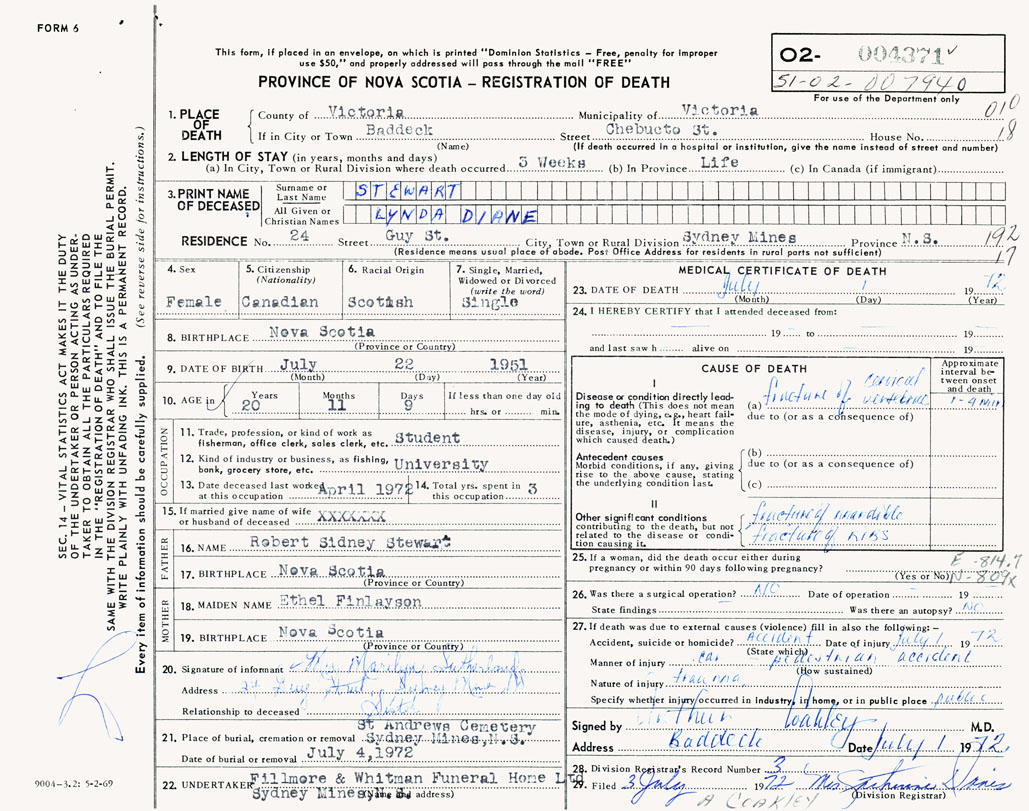 FORM 6
This form, if placed in an envelope, on which is printed "Dominion Statistics – Free, penalty for improper
use $50," and properly addressed will pass through the mail "FREE"
PROVINCE OF NOVA SCOTIA – REGISTRATION OF DEATH
02- 004371
51-02-007940
For use of the Department only
010
18
1. PLACE OF DEATH
County of Victoria Municipality of Victoria
If in City or Town Baddeck Street Chebucto St. House No.
(Name) (If death occurred in a hospital or institution, give the name instead of street and number)
2. LENGTH OF STAY (in years, months and days)
(a) In City, Town or Rural Division where death occurred 3 Weeks (b) In Province Life (c) In Canada (if immigrant)
3. PRINT NAME OF DECEASED
Surname or Last Name STEWART
All Given or Christian Names LYNDA DIANE
RESIDENCE No. 24 Street Guy St. City, Town or Rural Division Sydney Mines Province N.S.
(Residence means usual place of abode. Post Office Address for residents in rural parts not sufficient)
192
17
4. Sex
Female
5. Citizenship (Nationality)
Canadian
6. Racial Origin
Scotish
7. Single, Married, Widowed or Divorced (write the word)
Single
8. BIRTHPLACE Nova Scotia
(Province or Country)
9. DATE OF BIRTH July 22 1951
(Month) (Day) (Year)
10. AGE in Years 20 Months 11 Days 9 If less than one day old hrs. or min.
OCCUPATION
11. Trade, profession, or kind of work as
fisherman, office clerk, sales clerk, etc. Student
12. Kind of industry or business, as fishing,
bank, grocery store, etc. University
13. Date deceased last worked
at this occupation April 1972
14. Total yrs. spent in
this occupation 3
15. If married give name of wife
or husband of deceased XXXXXXX
FATHER
16. NAME Robert Sidney Stewart
17. BIRTHPLACE Nova Scotia
(Province or Country)
MOTHER
18. MAIDEN NAME Ethel Finlayson
19. BIRTHPLACE Nova Scotia
(Province or Country)
20. Signature of informant Marilyn Sutherland
Address Sydney Mines NS
Relationship to deceased Sister
21. Place of burial, cremation or removal St Andrews Cemetery
Sydney Mines, N.S.
Date of burial or removal July 4, 1972
22. UNDERTAKER Fillmore & Whitman Funeral Home Ltd
Sydney Mines N.S.
(Name and address)
MEDICAL CERTIFICATE OF DEATH
23. DATE OF DEATH July 1 1972
(Month) (Day) (Year)
24. I HEREBY CERTIFY that I attended deceased from:
19 to 19
and last saw h alive on 19
CAUSE OF DEATH
Approximate interval between onset and death
I
Disease or condition directly leading to death (This does not mean the mode of dying, e.g., heart failure, asthenia, etc. It means the disease, injury, or complication which caused death.)
(a) fracture of cervical vertebrae
due to (or as a consequence of)
Antecedent causes
Morbid conditions, if any, giving rise to the above cause, stating the underlying condition last.
(b)
due to (or as a consequence of)
(c)
II
Other significant conditions
contributing to the death, but not related to the disease or condition causing it.
fracture of mandible
fracture of ribs
25. If a woman, did the death occur either during
pregnancy or within 90 days following pregnancy?
(Yes or No)
E-814.7
N-809x
26. Was there a surgical operation? NO Date of operation 19
State findings Was there an autopsy? NO
27. If death was due to external causes (violence) fill in also the following: –
Accident, suicide or homicide? Accident Date of injury July 1 1972
(State which)
Manner of injury car - pedestrian accident
(How sustained)
Nature of injury trauma
Specify whether injury occurred in industry, in home, or in public place public
Signed by Arthur Coakley M.D.
Address Baddeck Date July 1 1972
28. Division Registrar's Record Number 3
29. Filed 3 July 1972 Mrs.
(Division Registrar)
A COAKLEY
SEC. 14 – VITAL STATISTICS ACT MAKES IT THE DUTY
OF THE UNDERTAKER OR PERSON ACTING AS UNDER-
TAKER TO OBTAIN ALL THE PARTICULARS REQUIRED
IN THE "REGISTRATION OF DEATH" AND TO FILE THE
SAME WITH THE DIVISION REGISTRAR WHO SHALL ISSUE THE BURIAL PERMIT.
WRITE PLAINLY WITH UNFADING INK. THIS IS A PERMANENT RECORD.
Every item of information should be carefully supplied. (See reverse side for instructions.)
9004-3.2: 5-2-69